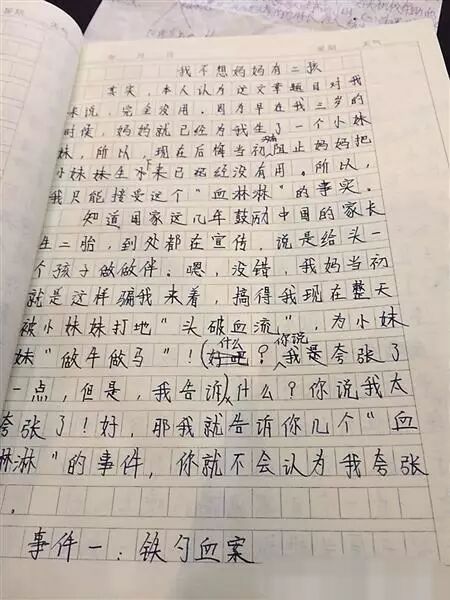 星期 天气
年 月 日 星期 天气
我不想妈妈有二孩
其实，本人认为这文章题目对我
来说，完全没用。因为早在我三岁的
时候，妈妈就已经为我生了一个小妹
妹，所以，现在后悔当初没阻止妈妈把
小妹妹生下来已经没有用。所以，
我只能接受这个“血淋淋”的事实。
知道国家这几年鼓励中国的家长
生二胎，到处都在宣传。说是给头一
个孩子做做伴。嗯，没错，我妈当初
就是这样骗我来着，搞得我现在整天
被小妹妹打地“头破血流”，为小妹
妹“做牛做马”！（什么？你说我是夸张了
一点，但是，我告诉）什么？你说我太
夸张了！好，那我就告诉你几个“血
淋淋”的事件，你就不会认为我夸张
。
事件一：铁勺血案